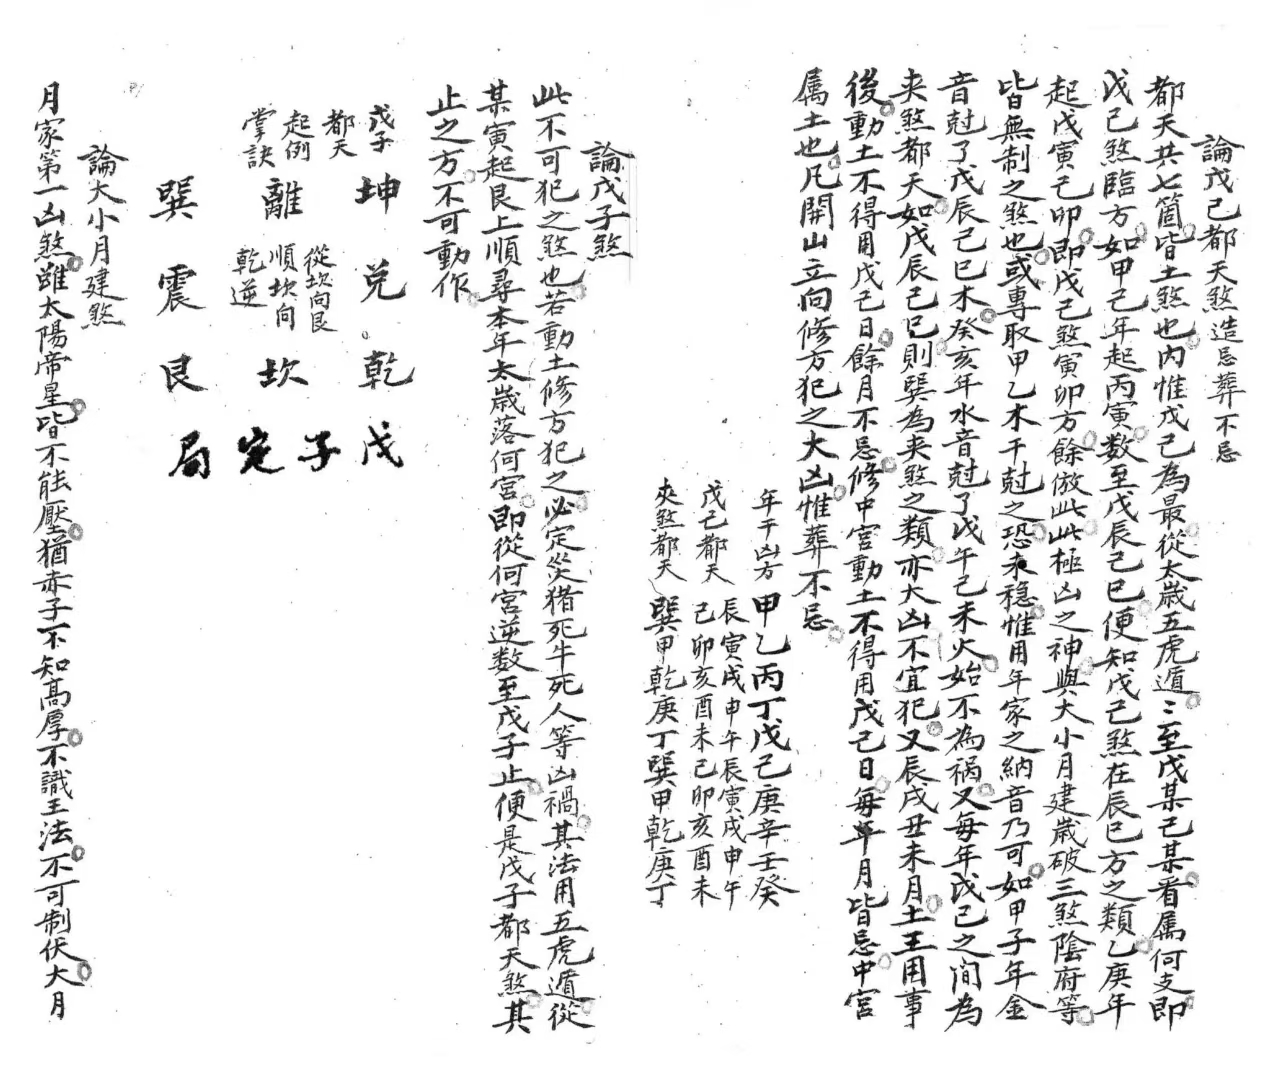 論戊己都天煞造忌葬不忌
都天共七箇皆土煞也内惟戊己為最從太歲五虎遁〻至戊某己某看属何支即
戊己煞臨方如甲己年起丙寅数至戊辰己巳便知戊己煞在辰巳方之類乙庚年
起戊寅己卯即戊己煞寅卯方餘倣此此極凶之神與大小月建歲破三煞陰府等
皆無制之煞也或專取甲乙木干尅之恐未穏惟用年家之納音乃可如甲子年金
音尅了戊辰己巳木癸亥年水音尅了戊午己未火始不為禍又每年戊己之間為
夾煞都天如戊辰己巳則巽為夾煞之類亦大凶不宜犯又辰戌丑未月土王用事
後動土不得用戊己日餘月不忌修中宮動土不得用戊己日每年月皆忌中宮
属土也凡開山立向修方犯之大凶惟葬不忌
年干凶方 甲乙丙丁戊己庚辛壬癸
戊己都天 辰寅戌申午辰寅戌申午
己卯亥酉未己卯亥酉未
夾煞都天 巽甲乾庚丁巽甲乾庚丁
論戊子煞
此不可犯之煞也若動土修方犯之必定災猪死牛死人等凶禍其法用五虎遁從
某寅起艮上順尋本年太歲落何宮即從何宮逆数至戊子止便是戊子都天煞其
止之方不可動作
戊子
都天
起例
掌訣
坤 兌 乾 戊
離 從坎向艮
順坎向
乾逆 坎 子
定
巽 震 艮 局
論大小月建煞
月家第一凶煞雖太陽帝星皆不能壓猶赤子不知高厚不識王法不可制伏大月